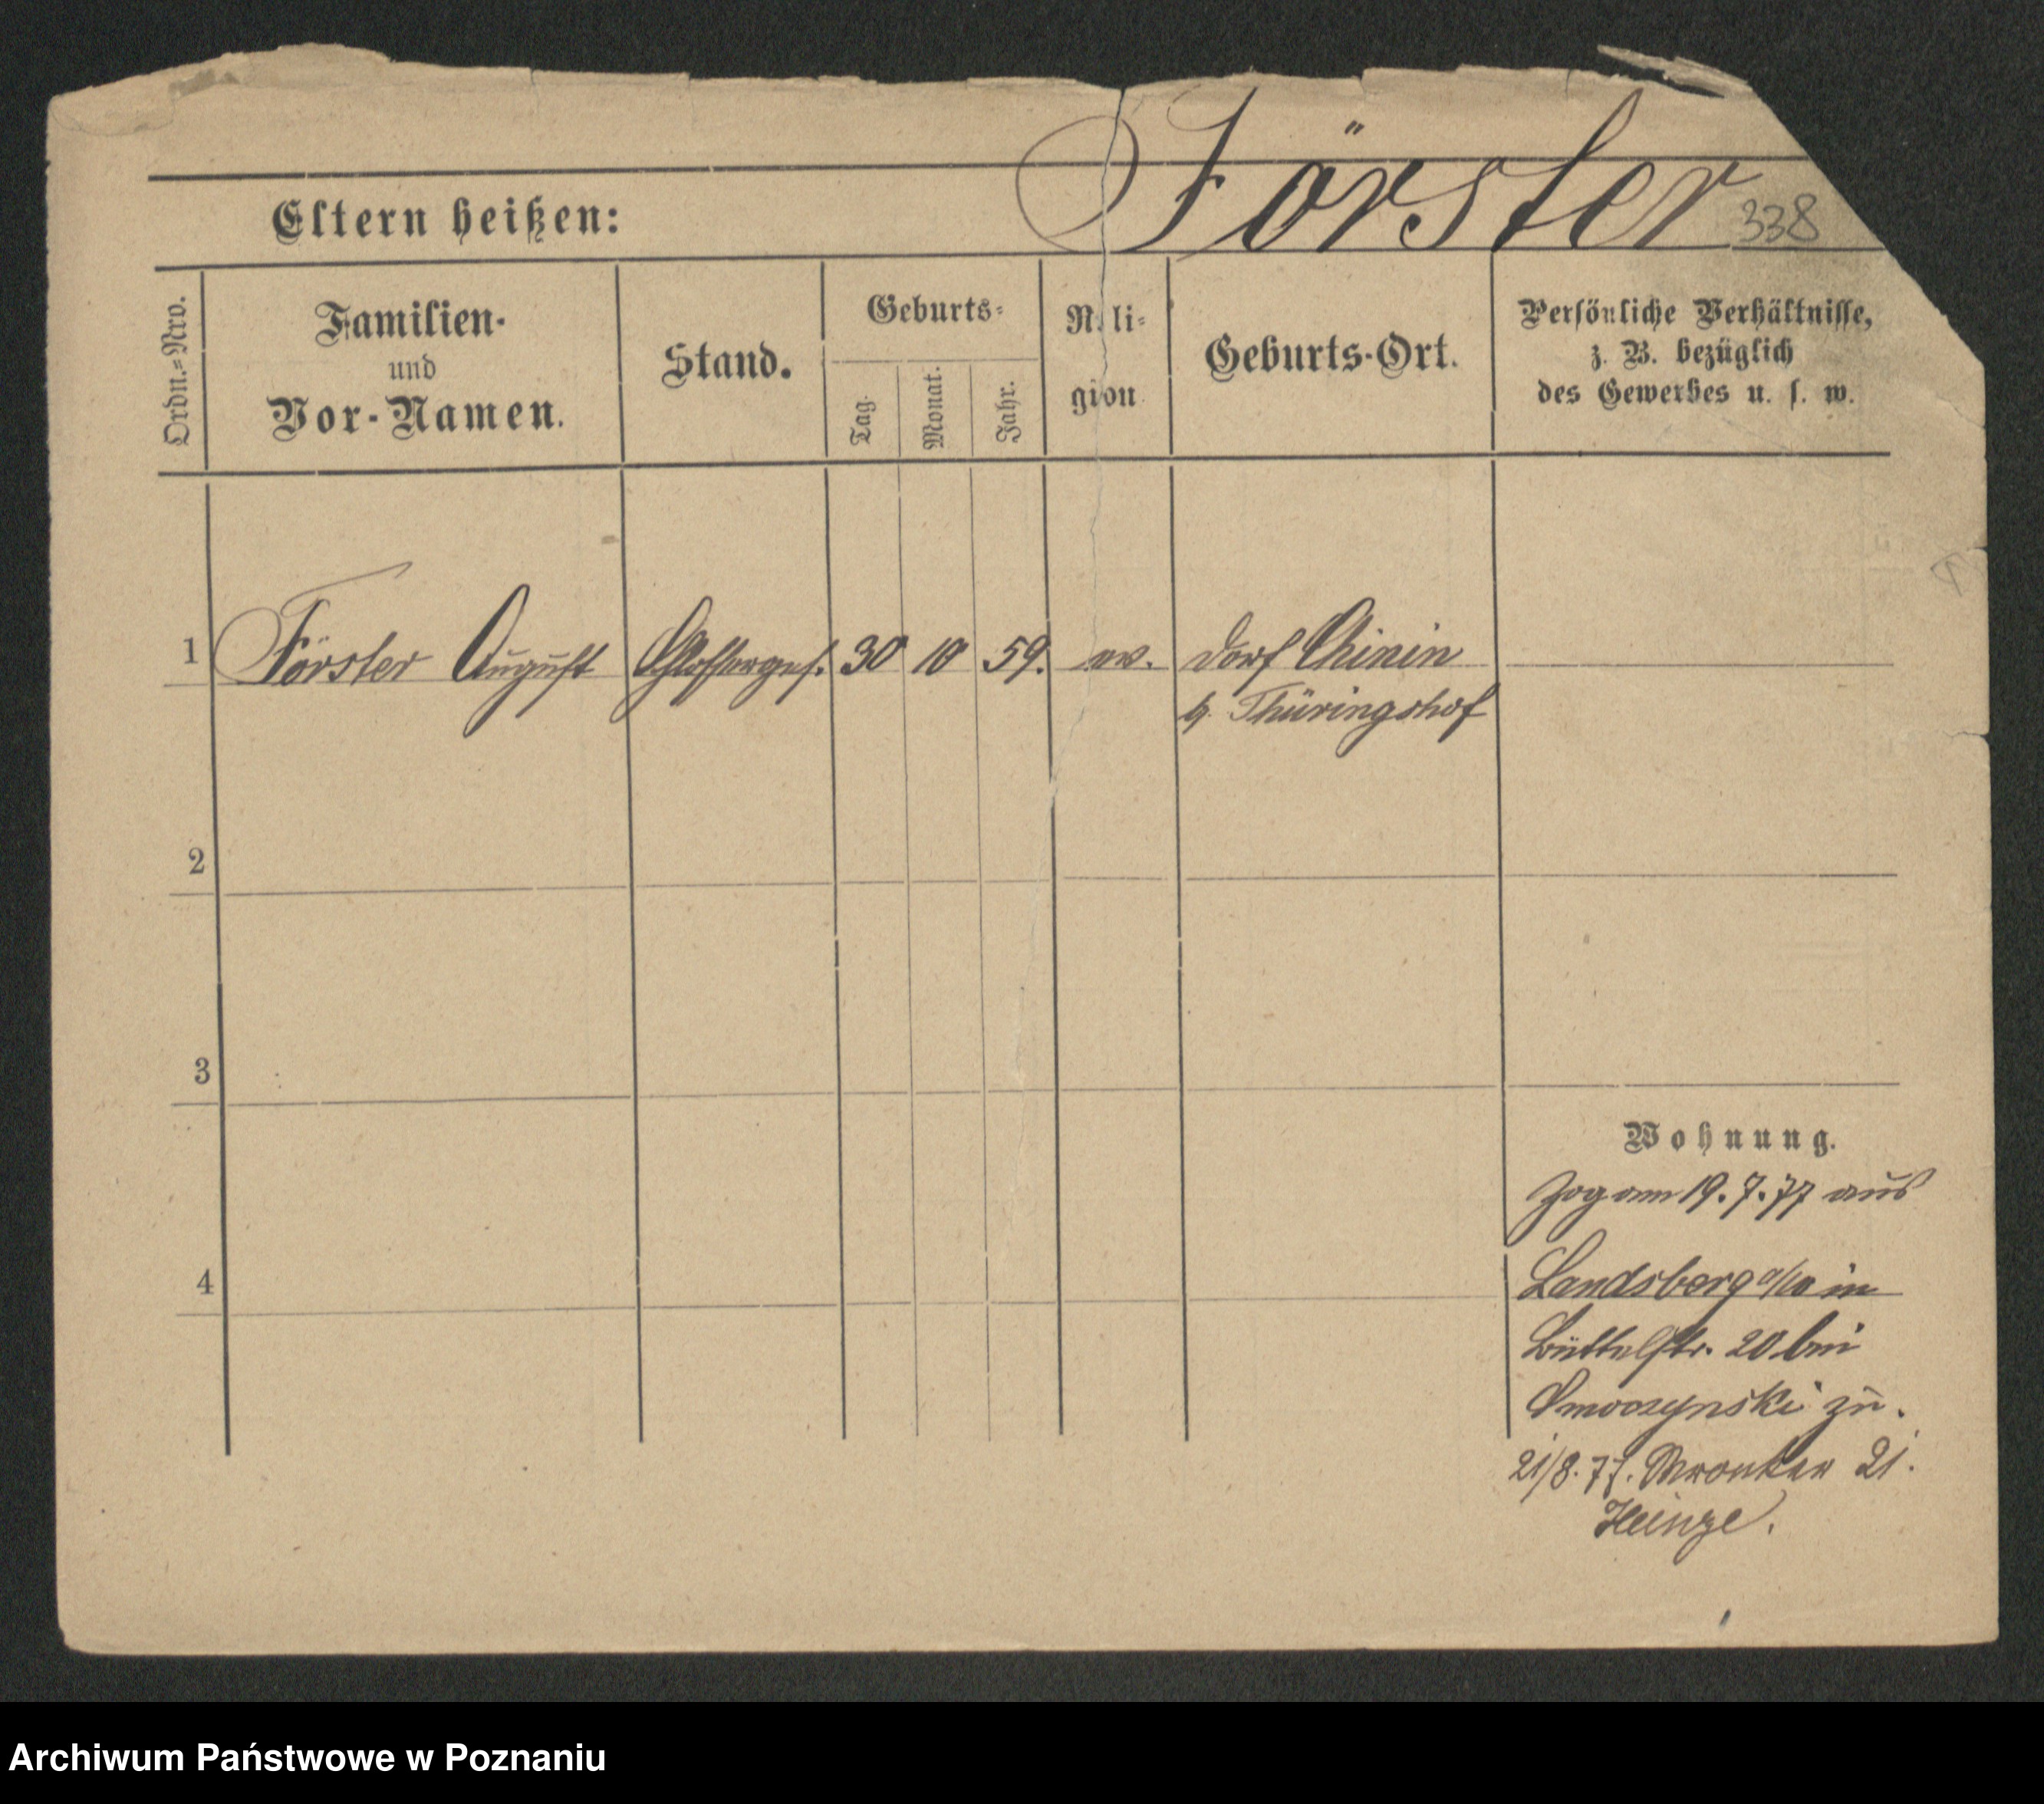 Förster
338
Eltern heißen:
Ordn.-Nro.
Familien-
und
Vor-Namen.
Stand.
Geburts-
Tag.
Monat.
Jahr.
Reli-
gion
Geburts-Ort.
Persönliche Verhältnisse,
z. B. bezüglich
des Gewerbes u. s. w.
1 Förster August Schlosserges. 30 10 59. ev. Dorf Chinin
b. Thüringshof
2
3
4
Wohnung.
Zog am 19.7.77 aus
Landsberg a/W in
Büttelstr. 20 bei
Smoczynski zu.
21/8.77. Wronker 21.
Heinze.
Archiwum Państwowe w Poznaniu